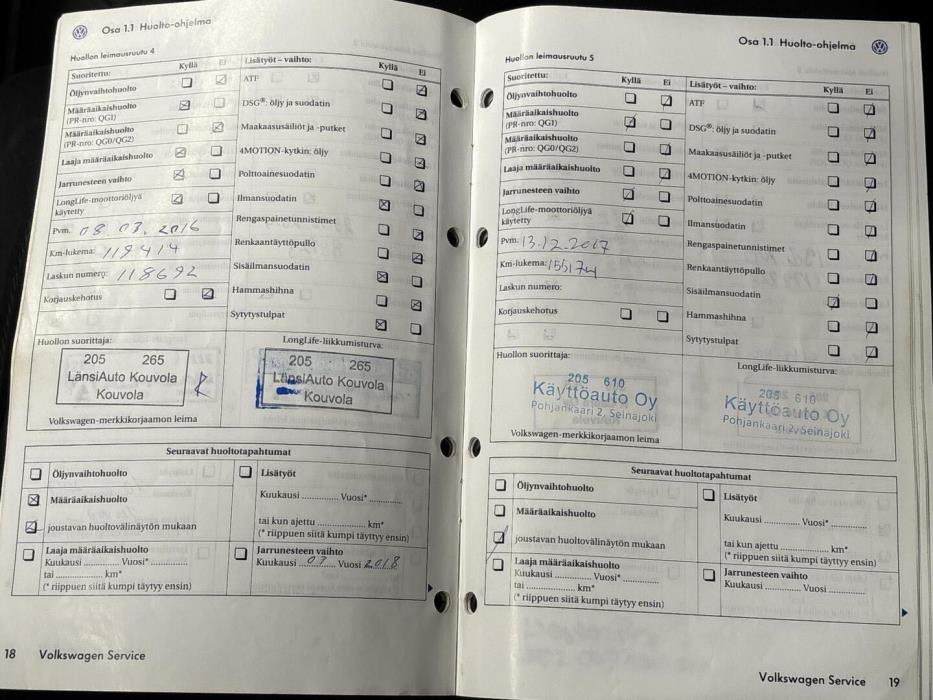 Osa 1.1 Huolto-ohjelma
Huollon leimausruutu 4
Suoritettu: Kyllä Ei
Öljynvaihtohuolto
Määräaikaishuolto
(PR-nro: QG1)
Määräaikaishuolto
(PR-nro: QG0/QG2)
Laaja määräaikaishuolto
Jarrunesteen vaihto
LongLife-moottoriöljyä
käytetty
Pvm. 08.03.2016
Km-lukema: 119414
Laskun numero: 118692
Korjauskehotus
Lisätyöt – vaihto: Kyllä Ei
ATF
DSG®: öljy ja suodatin
Maakaasusäiliöt ja -putket
4MOTION-kytkin: öljy
Polttoainesuodatin
Ilmansuodatin
Rengaspainetunnistimet
Renkaantäyttöpullo
Sisäilmansuodatin
Hammashihna
Sytytystulpat
Huollon suorittaja:
205 265
LänsiAuto Kouvola
Kouvola
Volkswagen-merkkikorjaamon leima
LongLife-liikkumisturva:
205 265
LänsiAuto Kouvola
Kouvola
Seuraavat huoltotapahtumat
Öljynvaihtohuolto
Määräaikaishuolto
joustavan huoltovälinäytön mukaan
Lisätyöt
Kuukausi .............. Vuosi* ..............
tai kun ajettu .................... km*
(* riippuen siitä kumpi täytyy ensin)
Laaja määräaikaishuolto
Kuukausi .............. Vuosi* ..............
tai .................... km*
(* riippuen siitä kumpi täytyy ensin)
Jarrunesteen vaihto
Kuukausi 03 Vuosi 2018
18 Volkswagen Service
Osa 1.1 Huolto-ohjelma
Huollon leimausruutu 5
Suoritettu: Kyllä Ei
Öljynvaihtohuolto
Määräaikaishuolto
(PR-nro: QG1)
Määräaikaishuolto
(PR-nro: QG0/QG2)
Laaja määräaikaishuolto
Jarrunesteen vaihto
LongLife-moottoriöljyä
käytetty
Pvm. 13.12.2017
Km-lukema: 155174
Laskun numero:
Korjauskehotus
Lisätyöt – vaihto: Kyllä Ei
ATF
DSG®: öljy ja suodatin
Maakaasusäiliöt ja -putket
4MOTION-kytkin: öljy
Polttoainesuodatin
Ilmansuodatin
Rengaspainetunnistimet
Renkaantäyttöpullo
Sisäilmansuodatin
Hammashihna
Sytytystulpat
Huollon suorittaja:
205 610
Käyttöauto Oy
Pohjankaari 2, Seinäjoki
Volkswagen-merkkikorjaamon leima
LongLife-liikkumisturva:
205 610
Käyttöauto Oy
Pohjankaari 2, Seinäjoki
Seuraavat huoltotapahtumat
Öljynvaihtohuolto
Määräaikaishuolto
joustavan huoltovälinäytön mukaan
Lisätyöt
Kuukausi .............. Vuosi* ..............
tai kun ajettu .................... km*
(* riippuen siitä kumpi täytyy ensin)
Laaja määräaikaishuolto
Kuukausi .............. Vuosi* ..............
tai .................... km*
(* riippuen siitä kumpi täytyy ensin)
Jarrunesteen vaihto
Kuukausi .............. Vuosi ..............
Volkswagen Service 19